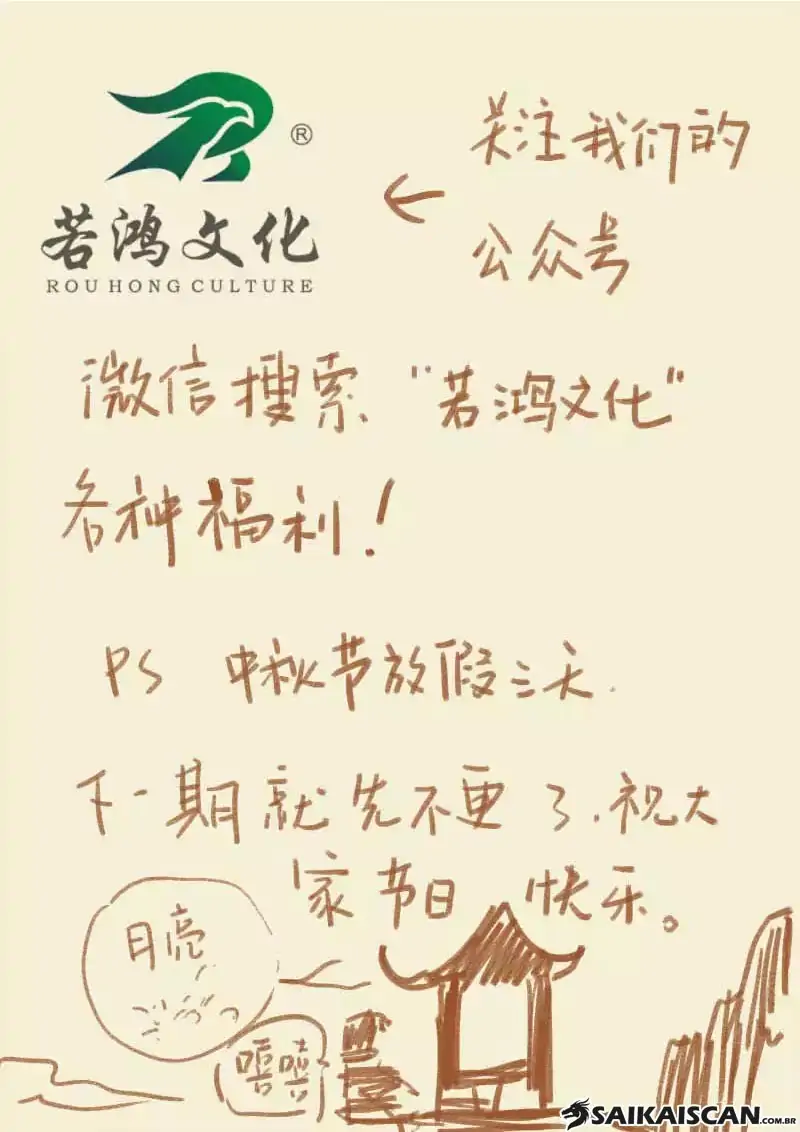 ®
若鸿文化
ROU HONG CULTURE
关注我们的
公众号
微信搜索"若鸿文化"
各种福利!
PS 中秋节放假三天.
下一期就先不更了.祝大
家节日快乐。
月亮
嘻嘻
SAIKAISCAN.COM.BR